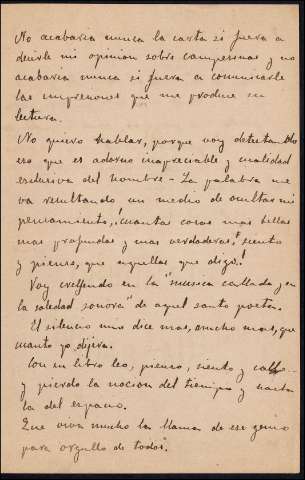 No acabaria nunca la carta si fuera a
decirle mi opinion sobre campesinas y no
acabaria nunca si fuera a comunicarle
las impresiones que me produce su
lectura.
No quiero hablar, porque voy detestando
eso que es adorno inapreciable y cualidad
exclusiva del hombre - La palabra me
va resultando un medio de ocultar mi
pensamiento, ¡cuantas cosas mas bellas
mas profundas y mas verdaderas, siento
y pienso, que aquellas que digo!
Voy creyendo en la "musica callada y en
la soledad sonora" de aquel santo poeta.
El silencio mio dice mas, mucho mas, que
cuanto yo dijera.
Con su libro leo, pienso, siento y callo
y pierdo la nocion del tiempo y hasta
la del espacio.
Que viva mucho la llama de ese genio
para orgullo de todos.